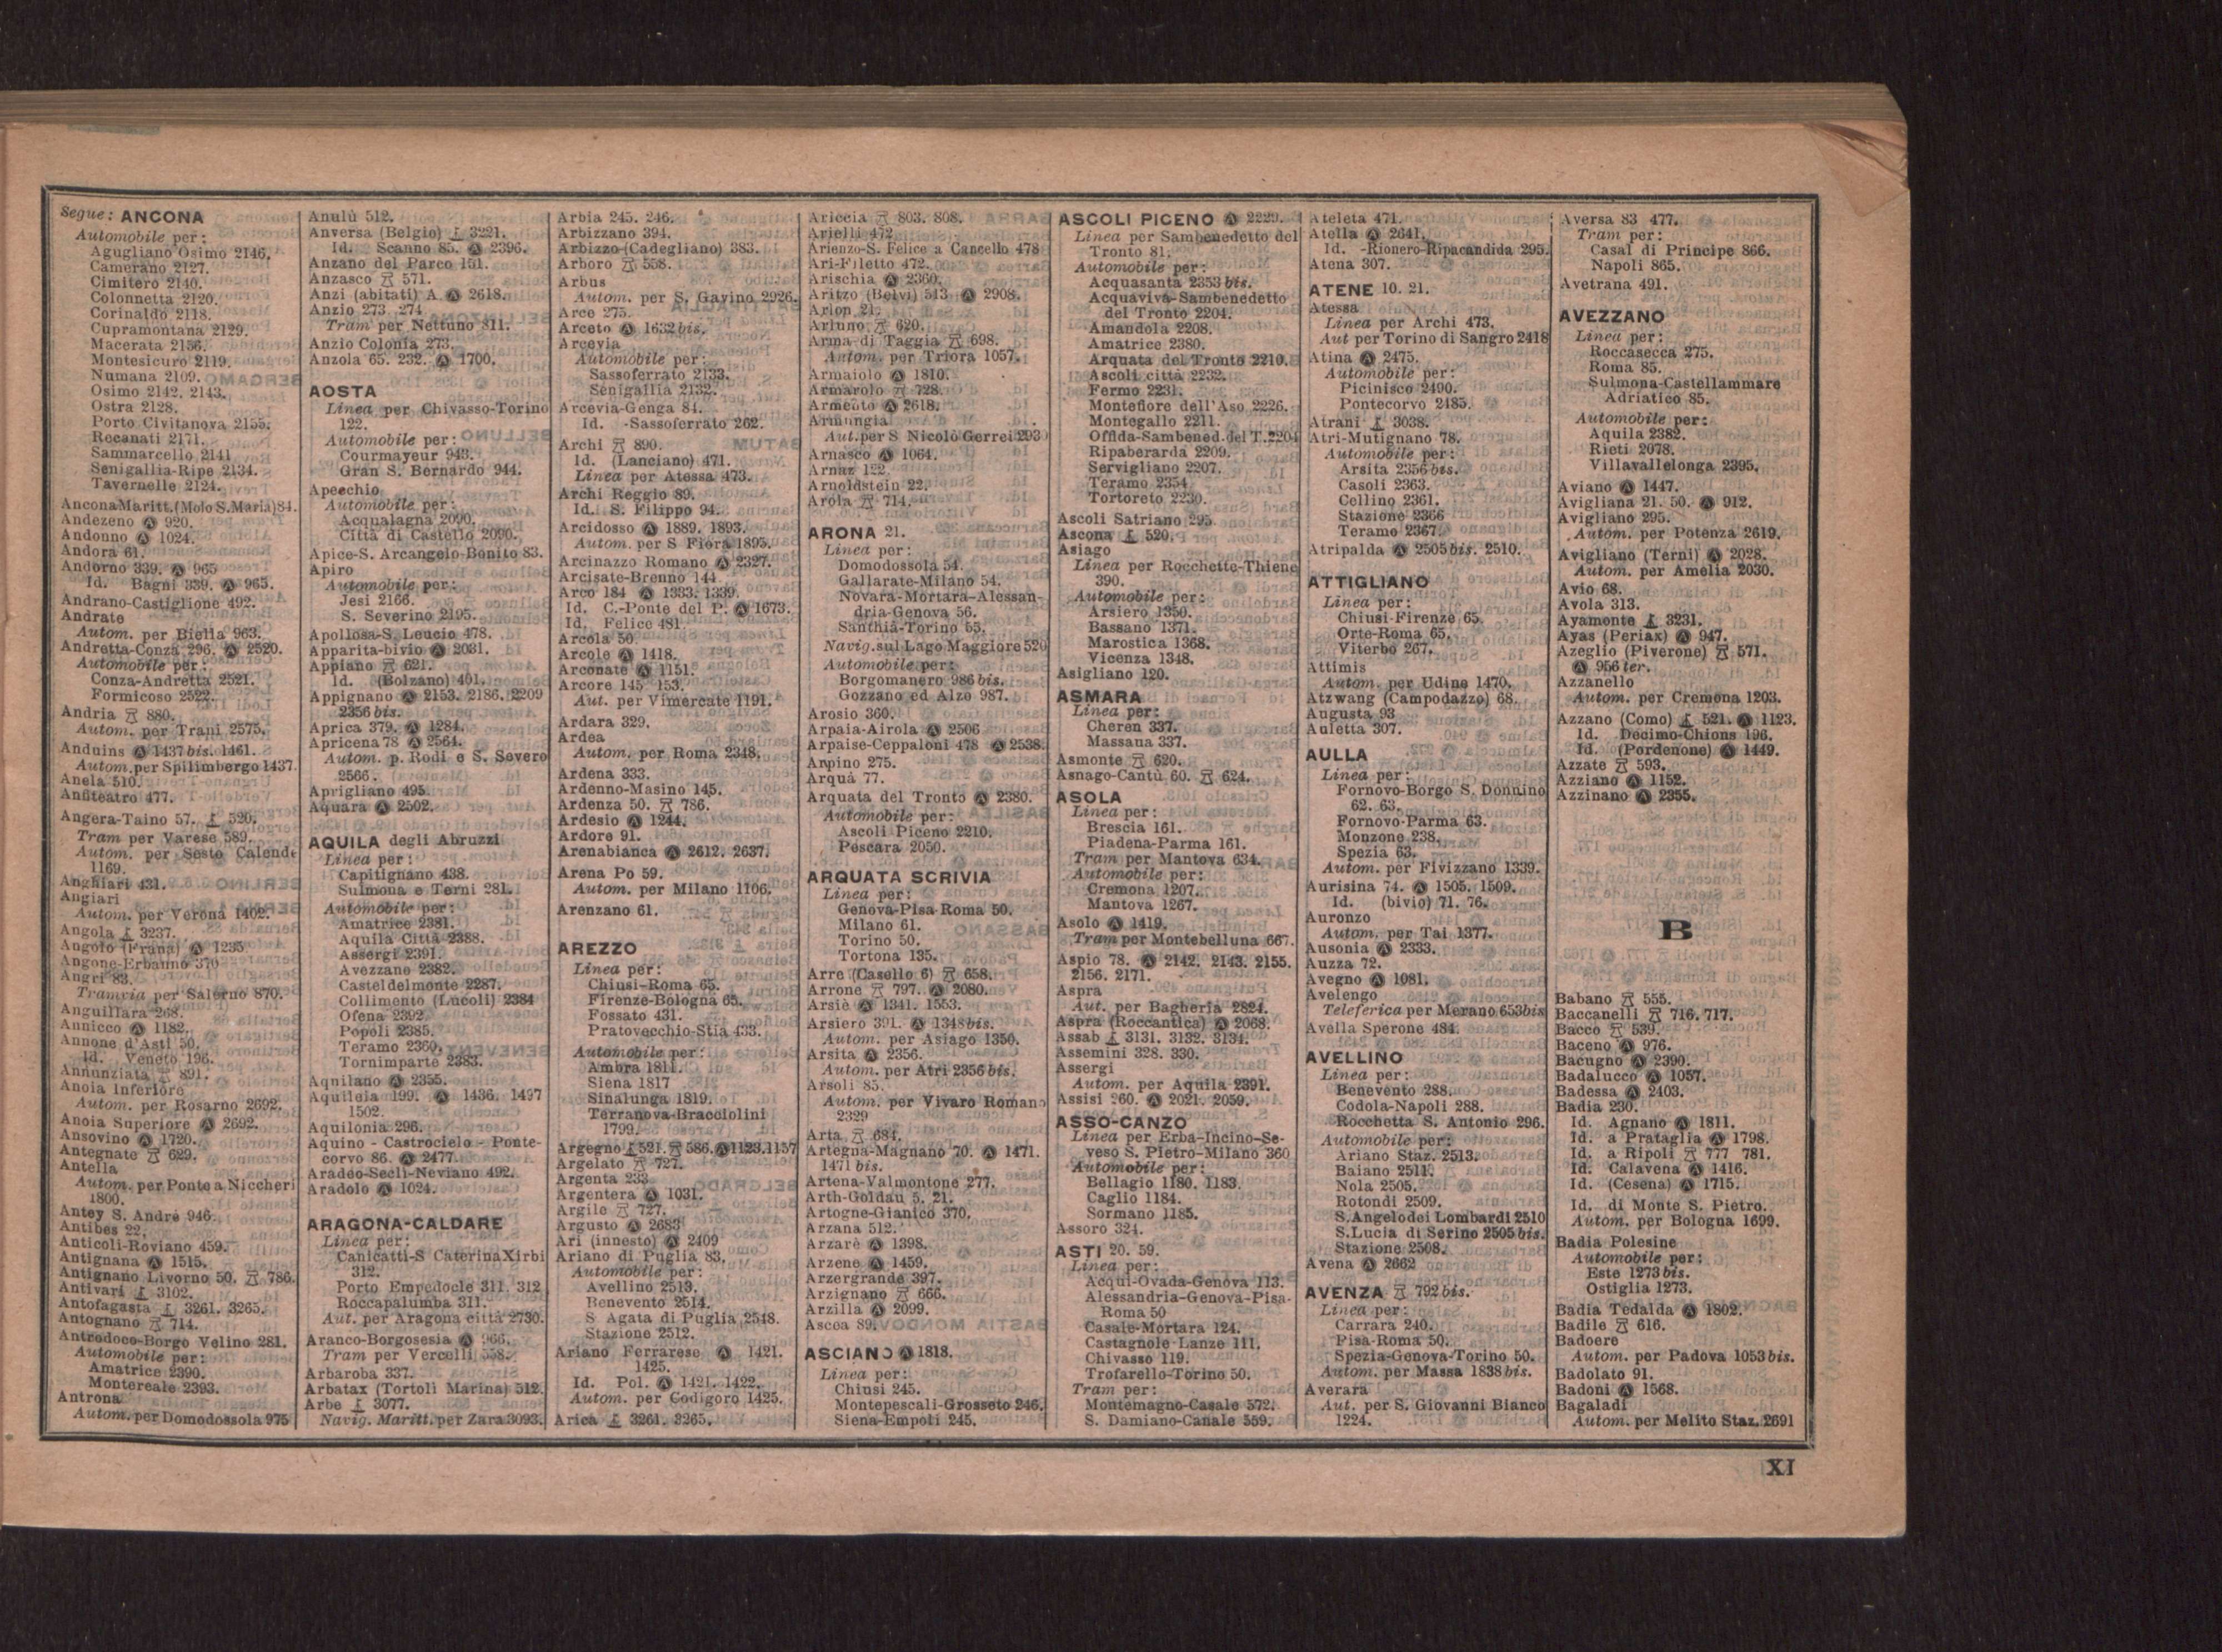 Segue: ANCONA
Automobile per:
Agugliano Osimo 2146.
Camerano 2127.
Cimitero 2140.
Colonnetta 2120.
Corinaldo 2118.
Cupramontana 2129.
Macerata 2156.
Montesicuro 2119.
Numana 2109.
Osimo 2142. 2143.
Ostra 2128.
Porto Civitanova 2155.
Recanati 2171.
Sammarcello 2141
Senigallia-Ripe 2134.
Tavernelle 2124.
Ancona Maritt. (Molo S. Maria) 84.
Andezeno Ⓐ 920.
Andonno Ⓐ 1024.
Andora 61.
Andorno 339. Ⓐ 965
Id. Bagni 339. Ⓐ 965.
Andrano-Castiglione 492.
Andrate
Autom. per Biella 963.
Andretta-Conza 296. Ⓐ 2520.
Automobile per:
Conza-Andretta 2521.
Formicoso 2522.
Andria 880.
Autom. per Trani 2575.
Anduins Ⓐ 1437 bis. 1461.
Autom. per Spilimbergo 1437.
Anela 510.
Anfiteatro 477.
Angera-Taino 57. 520.
Tram per Varese 589.
Autom. per Sesto Calende
1169.
Anghiari 431.
Angiari
Autom. per Verona 1402.
Angola 3237.
Angolo (Frana) Ⓐ 1235
Angone-Erbanno 370
Angri 83.
Tramvia per Salerno 870.
Anguillara 268.
Annicco Ⓐ 1182.
Annone d'Asti 50.
Id. Veneto 196.
Annunziata 891.
Anoia Inferiore
Autom. per Rosarno 2692.
Anoia Superiore Ⓐ 2692.
Ansovino Ⓐ 1720.
Antegnate 629.
Antella
Autom. per Ponte a Niccheri
1800.
Antey S. André 946.
Antibes 22.
Anticoli-Roviano 459.
Antignana Ⓐ 1515.
Antignano Livorno 50. 786.
Antivari 3102.
Antofagasta 3261. 3265.
Antognano 714.
Antrodoco-Borgo Velino 281.
Automobile per:
Amatrice 2390.
Montereale 2393.
Antrona
Autom. per Domodossola 975
Anulù 512.
Anversa (Belgio) 3221.
Id. Scanno 85. Ⓐ 2396.
Anzano del Parco 151.
Anzasco 571.
Anzi (abitati) A. Ⓐ 2618.
Anzio 273. 274
Tram per Nettuno 811.
Anzio Colonia 273.
Anzola 65. 232. Ⓐ 1700.
AOSTA
Linea per Chivasso-Torino
122.
Automobile per:
Courmayeur 943.
Gran S. Bernardo 944.
Apecchio
Automobile per:
Acqualagna 2090.
Città di Castello 2090.
Apice-S. Arcangelo-Bonito 83.
Apiro
Automobile per:
Jesi 2166.
S. Severino 2195.
Apollosa-S. Leucio 478.
Apparita-bivio Ⓐ 2031.
Appiano 621.
Id. (Bolzano) 401.
Appignano Ⓐ 2153. 2186. 2209
2356 bis.
Aprica 379. Ⓐ 1284.
Apricena 78 Ⓐ 2564.
Autom. p. Rodi e S. Severo
2566.
Aprigliano 495.
Aquara Ⓐ 2502.
AQUILA degli Abruzzi
Linea per:
Capitignano 438.
Sulmona e Terni 281.
Automobile per:
Amatrice 2381.
Aquila Città 2388.
Assergi 2391.
Avezzano 2382.
Casteldelmonte 2287.
Collimento (Lucoli) 2384
Ofena 2392.
Popoli 2385.
Teramo 2360.
Tornimparte 2383.
Aquilano Ⓐ 2355.
Aquileia 199. Ⓐ 1436. 1497
1502.
Aquilonia 296.
Aquino - Castrocielo - Ponte-
corvo 86. Ⓐ 2477.
Aradeo-Seclì-Neviano 492.
Aradolo Ⓐ 1024.
ARAGONA-CALDARE
Linea per:
Canicattì-S. Caterina Xirbi
312.
Porto Empedocle 311. 312
Roccapalumba 311.
Aut. per Aragona città 2730.
Aranco-Borgosesia Ⓐ 966.
Tram per Vercelli 558.
Arbaroba 337.
Arbatax (Tortolì Marina) 512.
Arbe 3077.
Navig. Maritt. per Zara 3093.
Arbia 245. 246.
Arbizzano 394.
Arbizzo-(Cadegliano) 383.
Arboro 558.
Arbus
Autom. per S. Gavino 2926.
Arce 275.
Arceto Ⓐ 1632 bis.
Arcevia
Automobile per:
Sassoferrato 2133.
Senigallia 2132.
Arcevia-Genga 84.
Id. -Sassoferrato 262.
Archi 890.
Id. (Lanciano) 471.
Linea per Atessa 473.
Archi Reggio 89.
Id. S. Filippo 94.
Arcidosso Ⓐ 1889. 1893.
Autom. per S. Fiora 1895.
Arcinazzo Romano Ⓐ 2327.
Arcisate-Brenno 144.
Arco 184 Ⓐ 1333. 1339.
Id. C.-Ponte del P. Ⓐ 1673.
Id. Felice 481.
Arcola 50.
Arcole Ⓐ 1418.
Arconate Ⓐ 1151.
Arcore 145 153.
Aut. per Vimercate 1191.
Ardara 329.
Ardea
Autom. per Roma 2348.
Ardena 333.
Ardenno-Masino 145.
Ardenza 50. 786.
Ardesio Ⓐ 1244.
Ardore 91.
Arenabianca Ⓐ 2612. 2637.
Arena Po 59.
Autom. per Milano 1106.
Arenzano 61.
AREZZO
Linea per:
Chiusi-Roma 65.
Firenze-Bologna 65.
Fossato 431.
Pratovecchio-Stia 433.
Automobile per:
Ambra 1811.
Siena 1817
Sinalunga 1819.
Terranova-Bracciolini
1799.
Argegno 521. 586. Ⓐ 1123. 1157
Argelato 727.
Argenta 233
Argentera Ⓐ 1031.
Argile 727.
Argusto Ⓐ 2683
Ari (innesto) Ⓐ 2409
Ariano di Puglia 83.
Automobile per:
Avellino 2513.
Benevento 2514.
S. Agata di Puglia 2548.
Stazione 2512.
Ariano Ferrarese Ⓐ 1421.
1425.
Id. Pol. Ⓐ 1421. 1422.
Autom. per Codigoro 1425.
Arica 3261. 3265.
Ariccia 803. 808.
Arielli 472.
Arienzo-S. Felice a Cancello 478
Ari-Filetto 472.
Arischia Ⓐ 2360.
Aritzo (Belvì) 513 Ⓐ 2908.
Arlon 21.
Arluno 620.
Arma di Taggia 698.
Autom. per Triora 1057.
Armaiolo Ⓐ 1810.
Armarolo 728.
Armento Ⓐ 2618.
Armungia
Aut. per S. Nicolò Gerrei 293
Arnasco Ⓐ 1064.
Arnaz 122.
Arnoldstein 22.
Arola 714.
ARONA 21.
Linea per:
Domodossola 54.
Gallarate-Milano 54.
Novara-Mortara-Alessan-
dria-Genova 56.
Santhià-Torino 55.
Navig. sul Lago Maggiore 520
Automobile per:
Borgomanero 986 bis.
Gozzano ed Alzo 987.
Arosio 360.
Arpaia-Airola Ⓐ 2506
Arpaise-Ceppaloni 478 Ⓐ 2538.
Arpino 275.
Arquà 77.
Arquata del Tronto Ⓐ 2380.
Automobile per:
Ascoli Piceno 2210.
Pescara 2050.
ARQUATA SCRIVIA
Linea per:
Genova-Pisa-Roma 50.
Milano 61.
Torino 50.
Tortona 135.
Arre (Casello 6) 658.
Arrone 797. Ⓐ 2080.
Arsiè Ⓐ 1341. 1553.
Arsiero 391. Ⓐ 1348 bis.
Autom. per Asiago 1350.
Arsita Ⓐ 2356.
Autom. per Atri 2356 bis.
Arsoli 85.
Autom. per Vivaro Romano
2329
Arta 684.
Artegna-Magnano 70. Ⓐ 1471.
1471 bis.
Artena-Valmontone 277.
Arth-Goldau 5. 21.
Artogne-Gianico 370.
Arzana 512.
Arzarè Ⓐ 1398.
Arzene Ⓐ 1459.
Arzergrande 397.
Arzignano 666.
Arzilla Ⓐ 2099.
Ascea 89.
ASCIANO Ⓐ 1818.
Linea per:
Chiusi 245.
Montepescali-Grosseto 246.
Siena-Empoli 245.
ASCOLI PICENO Ⓐ 2229.
Linea per Sambenedetto del
Tronto 81.
Automobile per:
Acquasanta 2353 bis.
Acquaviva-Sambenedetto
del Tronto 2204.
Amandola 2208.
Amatrice 2380.
Arquata del Tronto 2210.
Ascoli città 2232.
Fermo 2231.
Montefiore dell'Aso 2226.
Montegallo 2211.
Offida-Sambened. del T. 2204
Ripaberarda 2209.
Servigliano 2207.
Teramo 2354
Tortoreto 2230.
Ascoli Satriano 295.
Ascona 520.
Asiago
Linea per Rocchette-Thiene
390.
Automobile per:
Arsiero 1350.
Bassano 1371.
Marostica 1368.
Vicenza 1348.
Asigliano 120.
ASMARA
Linea per:
Cheren 337.
Massaua 337.
Asmonte 620.
Asnago-Cantù 60. 624.
ASOLA
Linea per:
Brescia 161.
Piadena-Parma 161.
Tram per Mantova 634.
Automobile per:
Cremona 1207.
Mantova 1267.
Asolo Ⓐ 1419.
Tram per Montebelluna 667.
Aspio 78. Ⓐ 2142. 2143. 2155.
2156. 2171.
Aspra
Aut. per Bagheria 2824.
Aspra (Roccantica) Ⓐ 2068.
Assab 3131. 3132. 3134.
Assemini 328. 330.
Assergi
Autom. per Aquila 2391.
Assisi 260. Ⓐ 2021. 2059.
ASSO-CANZO
Linea per Erba-Incino-Se-
veso S. Pietro-Milano 360
Automobile per:
Bellagio 1180. 1183.
Caglio 1184.
Sormano 1185.
Assoro 324.
ASTI 20. 59.
Linea per:
Acqui-Ovada-Genova 113.
Alessandria-Genova-Pisa-
Roma 50
Casale-Mortara 124.
Castagnole-Lanze 111.
Chivasso 119.
Trofarello-Torino 50.
Tram per:
Montemagno-Casale 572.
S. Damiano-Canale 559.
Ateleta 471.
Atella Ⓐ 2641.
Id. -Rionero-Ripacandida 295.
Atena 307.
ATENE 10. 21.
Atessa
Linea per Archi 473.
Aut per Torino di Sangro 2418
Atina Ⓐ 2475.
Automobile per:
Picinisco 2490.
Pontecorvo 2485.
Atrani 3038.
Atri-Mutignano 78.
Automobile per:
Arsita 2356 bis.
Casoli 2363.
Cellino 2361.
Stazione 2366
Teramo 2367.
Atripalda Ⓐ 2505 bis. 2510.
ATTIGLIANO
Linea per:
Chiusi-Firenze 65.
Orte-Roma 65.
Viterbo 267.
Attimis
Autom. per Udine 1470.
Atzwang (Campodazzo) 68.
Augusta 93
Auletta 307.
AULLA
Linea per:
Fornovo-Borgo S. Donnino
62. 63.
Fornovo-Parma 63.
Monzone 238.
Spezia 63.
Autom. per Fivizzano 1339.
Aurisina 74. Ⓐ 1505. 1509.
Id. (bivio) 71. 76.
Auronzo
Autom. per Tai 1377.
Ausonia Ⓐ 2333.
Auzza 72.
Avegno Ⓐ 1081.
Avelengo
Teleferica per Merano 653 bis
Avella Sperone 484.
AVELLINO
Linea per:
Benevento 288.
Codola-Napoli 288.
Rocchetta S. Antonio 296.
Automobile per:
Ariano Staz. 2513.
Baiano 2511.
Nola 2505.
Rotondi 2509.
S. Angelo dei Lombardi 2510
S. Lucia di Serino 2505 bis.
Stazione 2508.
Avena Ⓐ 2662
AVENZA 792 bis.
Linea per:
Carrara 240.
Pisa-Roma 50.
Spezia-Genova-Torino 50.
Autom. per Massa 1838 bis.
Averara
Aut. per S. Giovanni Bianco
1224.
Aversa 83 477.
Tram per:
Casal di Principe 866.
Napoli 865.
Avetrana 491.
AVEZZANO
Linea per:
Roccasecca 275.
Roma 85.
Sulmona-Castellammare
Adriatico 85.
Automobile per:
Aquila 2382.
Rieti 2078.
Villavallelonga 2395.
Aviano Ⓐ 1447.
Avigliana 21. 50. Ⓐ 912.
Avigliano 295.
Autom. per Potenza 2619.
Avigliano (Terni) Ⓐ 2028.
Autom. per Amelia 2030.
Avio 68.
Avola 313.
Ayamonte 3231.
Ayas (Periax) Ⓐ 947.
Azeglio (Piverone) 571.
Ⓐ 956 ter.
Azzanello
Autom. per Cremona 1203.
Azzano (Como) 521. Ⓐ 1123.
Id. Decimo-Chions 196.
Id. (Pordenone) Ⓐ 1449.
Azzate 593.
Azziano Ⓐ 1152.
Azzinano Ⓐ 2355.
B
Babano 555.
Baccanelli 716. 717.
Bacco 539.
Baceno Ⓐ 976.
Bacugno Ⓐ 2390.
Badalucco Ⓐ 1057.
Badessa Ⓐ 2403.
Badia 230.
Id. Agnano Ⓐ 1811.
Id. a Prataglia Ⓐ 1798.
Id. a Ripoli 777 781.
Id. Calavena Ⓐ 1416.
Id. (Cesena) Ⓐ 1715.
Id. di Monte S. Pietro.
Autom. per Bologna 1699.
Badia Polesine
Automobile per:
Este 1273 bis.
Ostiglia 1273.
Badia Tedalda Ⓐ 1802.
Badile 616.
Badoere
Autom. per Padova 1053 bis.
Badolato 91.
Badoni Ⓐ 1568.
Bagaladi
Autom. per Melito Staz. 2691
XI